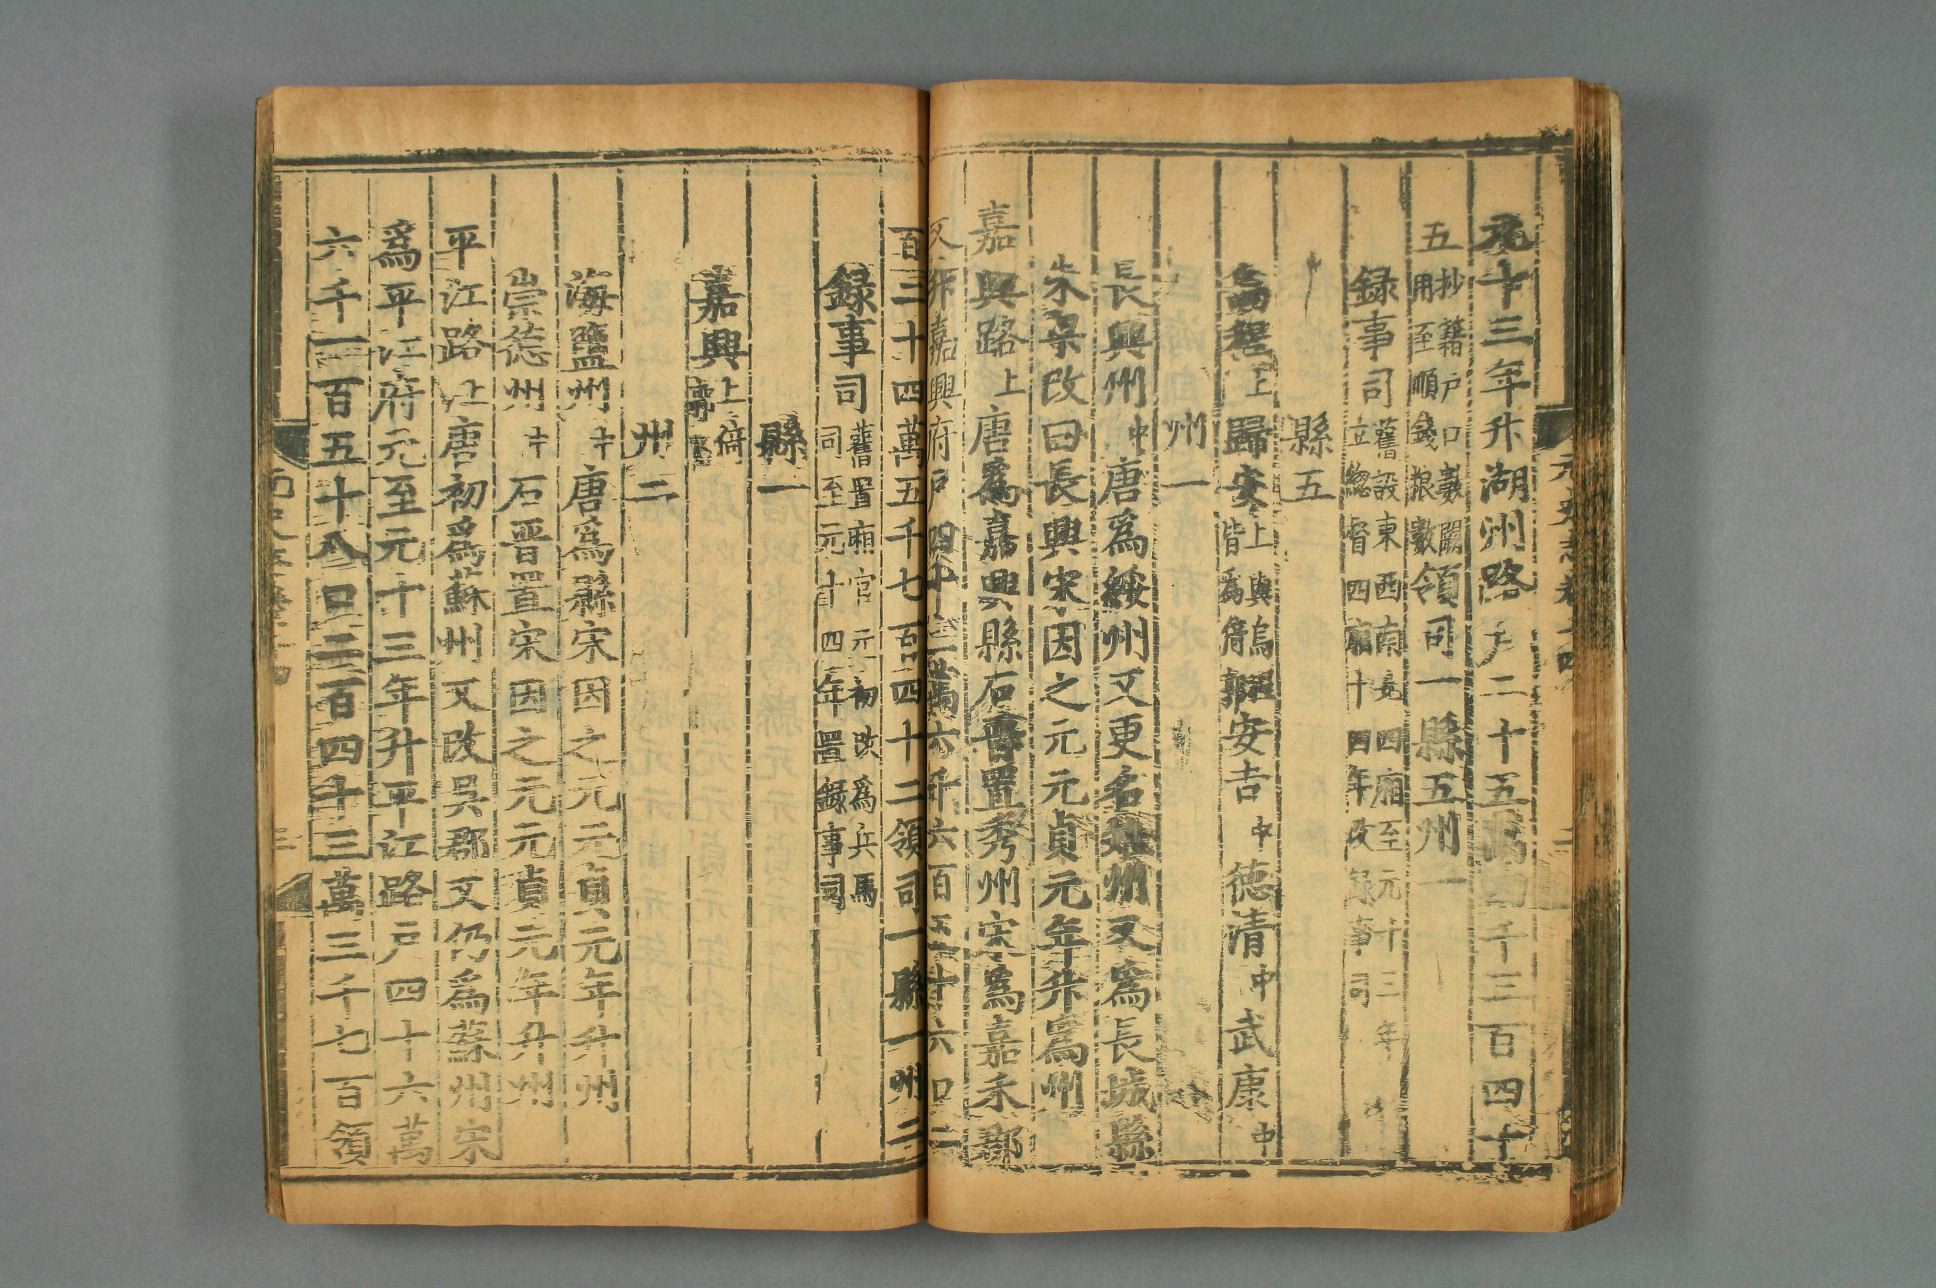 元十三年升湖州路戶二十五萬四千三百四十
五抄籍戶口數闕用至順錢粮數領司一縣五州一
録事司舊設東西南北四廂至元十三年立總督四廂十四年改録事司
縣五
烏程上歸安上與烏程皆爲倚郭安吉中德清中武康中
州一
長興州中唐爲綏州又更名雉州又爲長城縣
朱梁改曰長興宋因之元元貞元年升爲州
嘉興路上唐爲嘉興縣石晉置秀州宋爲嘉禾郡
又升嘉興府戶四十二萬六千六百五十六口二
百二十四萬五千七百四十二領司一縣一州二
録事司舊置廂官元初改爲兵馬司至元十四年置録事司
縣一
嘉興上倚郭
州二
海鹽州中唐爲縣宋因之元元貞元年升州
崇德州中石晉置宋因之元元貞元年升州
平江路上唐初爲蘇州又改吳郡又仍爲蘇州宋
爲平江府元至元十三年升平江路戶四十六萬
六千一百五十八口二百四十三萬三千七百領